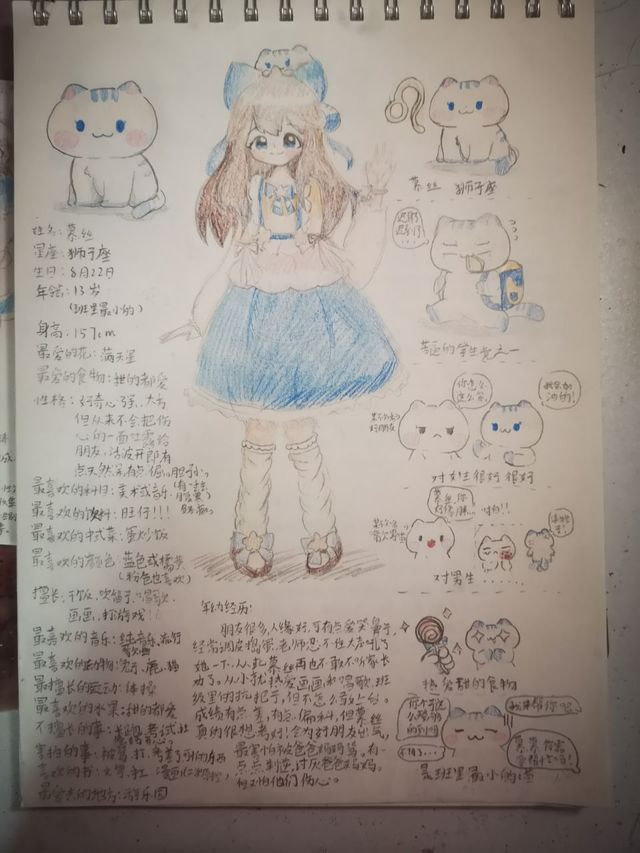 姓名:慕丝
星座:狮子座
生日:8月22日
年龄:13岁
(班里最小的)
身高:157cm
最爱的花:满天星
最爱的食物:甜的都爱
性格:好奇心强、大方
但从来不会把伤
心的一面吐露给
朋友,活波开郎有
点天然呆有点倔。胆小。
最喜欢的科目:美术或音乐
最喜欢的饮料:旺仔!!!
最喜欢的中式菜:蛋炒饭
最喜欢的颜色:蓝色或橘黄
(粉色也喜欢)
擅长:干饭、吹笛子、唱歌
画画、打游戏!!
最喜欢的音乐:纯音乐、流行
歌曲
最喜欢的动物:兔子、鹿、猫
最擅长的运动:体操
最喜欢的水果:甜的都爱
不擅长的事:考试
害怕的事:被骂、打、
最爱去的地方:游乐园
年幼经历:
朋友很多,人缘好,可有点爱哭鼻子,
经常调皮捣蛋,老师忍不住大声吼了
她一下,从此慕丝再也不敢不听家长
劝了。从小就热爱画画和唱歌,班
级里的抗把子,但不怎么敢上台。
成绩有点差,有点偏科,但慕丝
真的很想考好!会为对朋友出气,
最害怕被爸爸妈妈骂,有一
点点自连,讨厌爸爸妈妈,
但又怕他们伤心。
慕丝 狮子座
苦逼的学生党之一
你怎么
这么
我会加
油的!
对女生很好很好
对男生
热爱甜的食物
我来帮你吧
是班里最小的